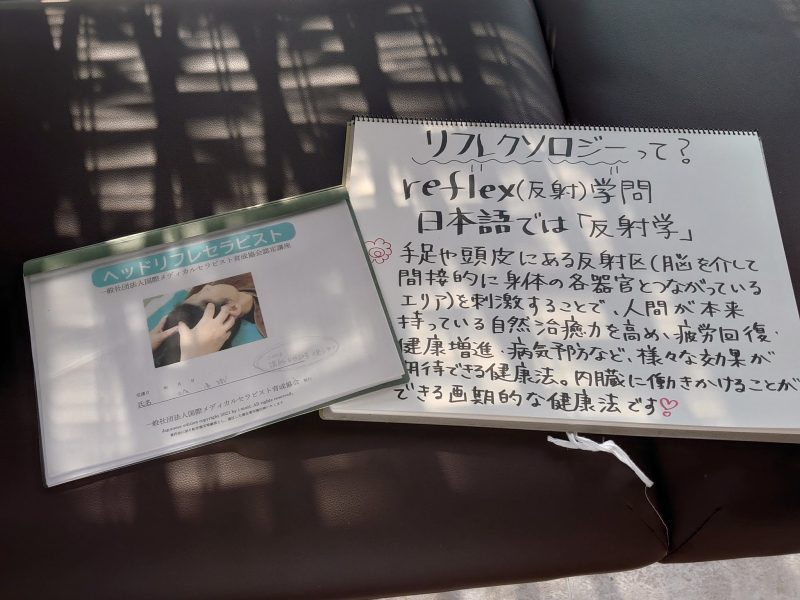 ヘッドリフレセラピスト
一般社団法人国際メディカルセラピスト育成協会認定講座
氏名
一般社団法人国際メディカルセラピスト育成協会
リフレクソロジーって?
reflex(反射)学問
日本語では「反射学」
手足や頭皮にある反射区(脳を介して
間接的に身体の各器官とつながっている
エリア)を刺激することで、人間が本来
持っている自然治癒力を高め、疲労回復・
健康増進・病気予防など、様々な効果が
期待できる健康法。内臓に働きかけることが
できる画期的な健康法です